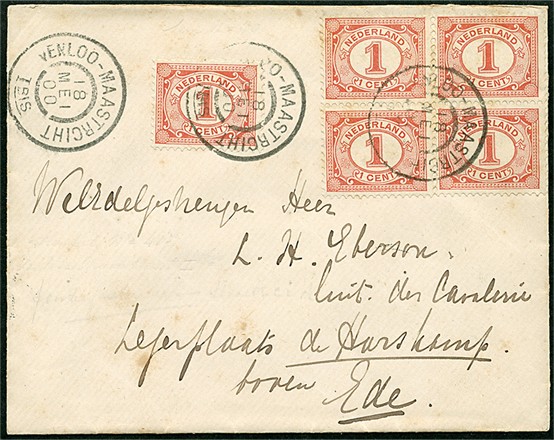 VENLOO-MAASTRCIHT
18
MEI
00
NEDERLAND
1
CENT
NEDERLAND
1
CENT
NEDERLAND
1
CENT
NEDERLAND
1
CENT
NEDERLAND
1
CENT
WelEdelgestrengen Heer
L. H. Eberson.
luit. der Cavalerie
Legerplaats de Harskamp.
boven Ede.